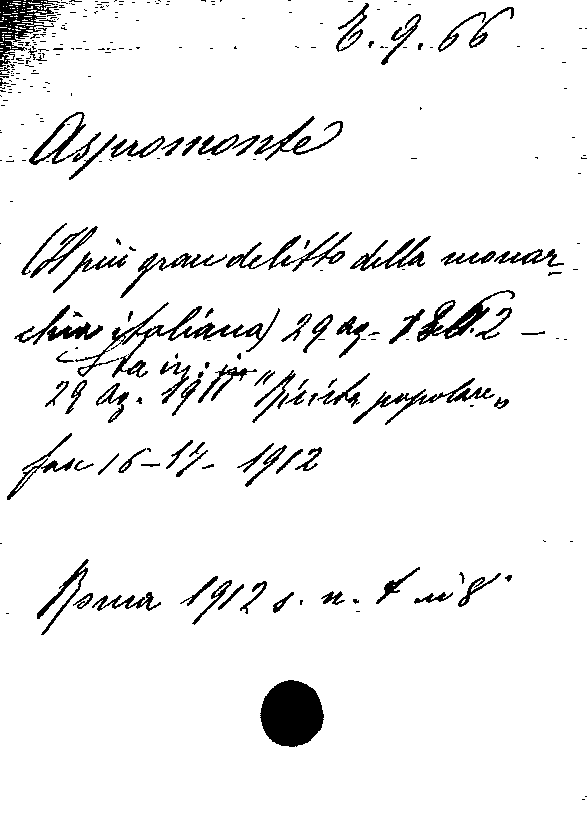 E. 9. 66
Aspromonte
(Il più gran delitto della monar-
chia italiana) 29 ag. 1862 —
Sta in:
29 ag. 1911 "Rivista popolare"
fasc 16-17- 1912
Roma 1912 s. n. t in 8°